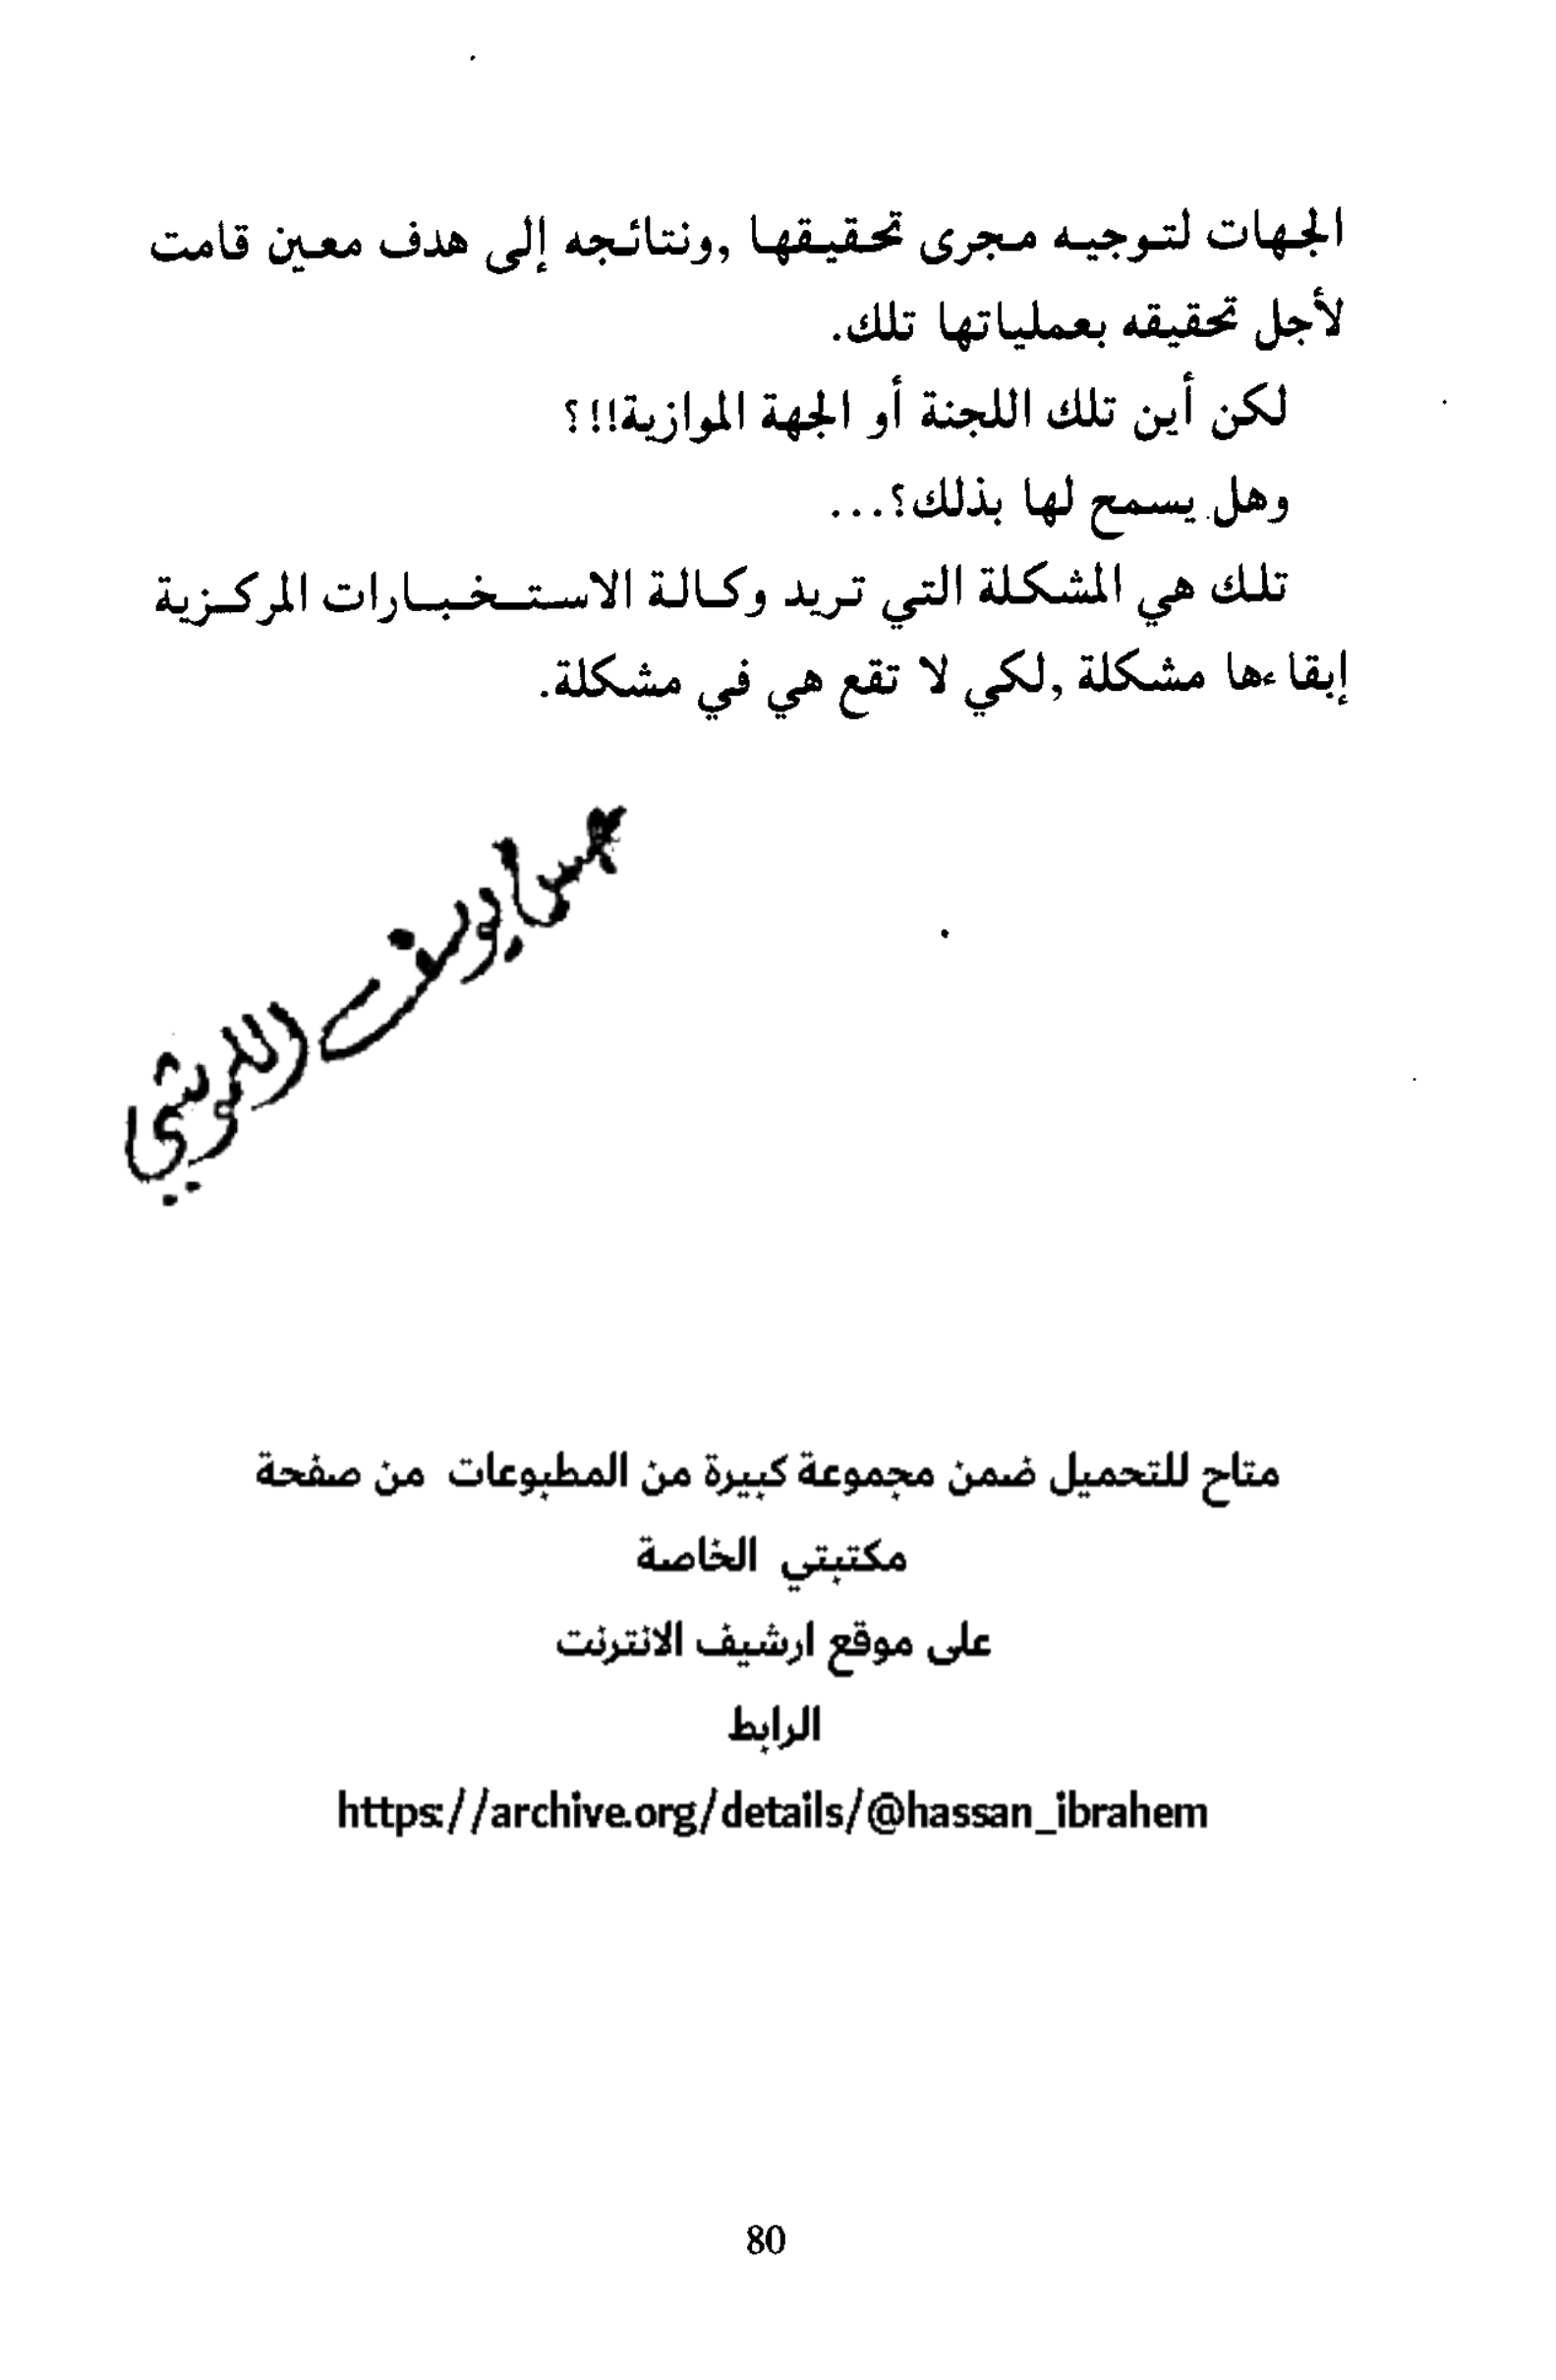 الجهات لتوجيه مجرى تحقيقها ,ونتائجه إلى هدف معين قامت
لأجل تحقيقه بعملياتها تلك.
لكن أين تلك اللجنة أو الجهة الموازية!!!؟
وهل يسمح لها بذلك؟...
تلك هي المشكلة التي تريد وكالة الاستخبارات المركزية
إبقاءها مشكلة ,لكي لا تقع هي في مشكلة.
يوسف
متاح للتحميل ضمن مجموعة كبيرة من المطبوعات من صفحة
مكتبتي الخاصة
على موقع ارشيف الانترنت
الرابط
https://archive.org/details/@hassan_ibrahem
80